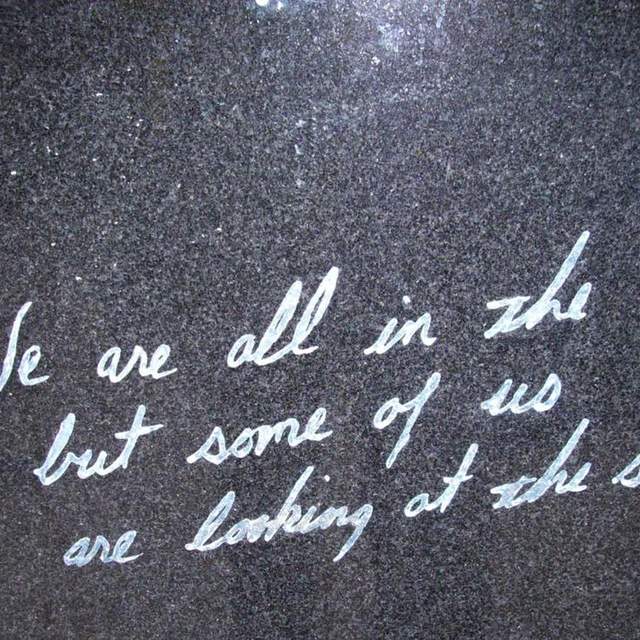 are all in the
but some of us
are looking at the